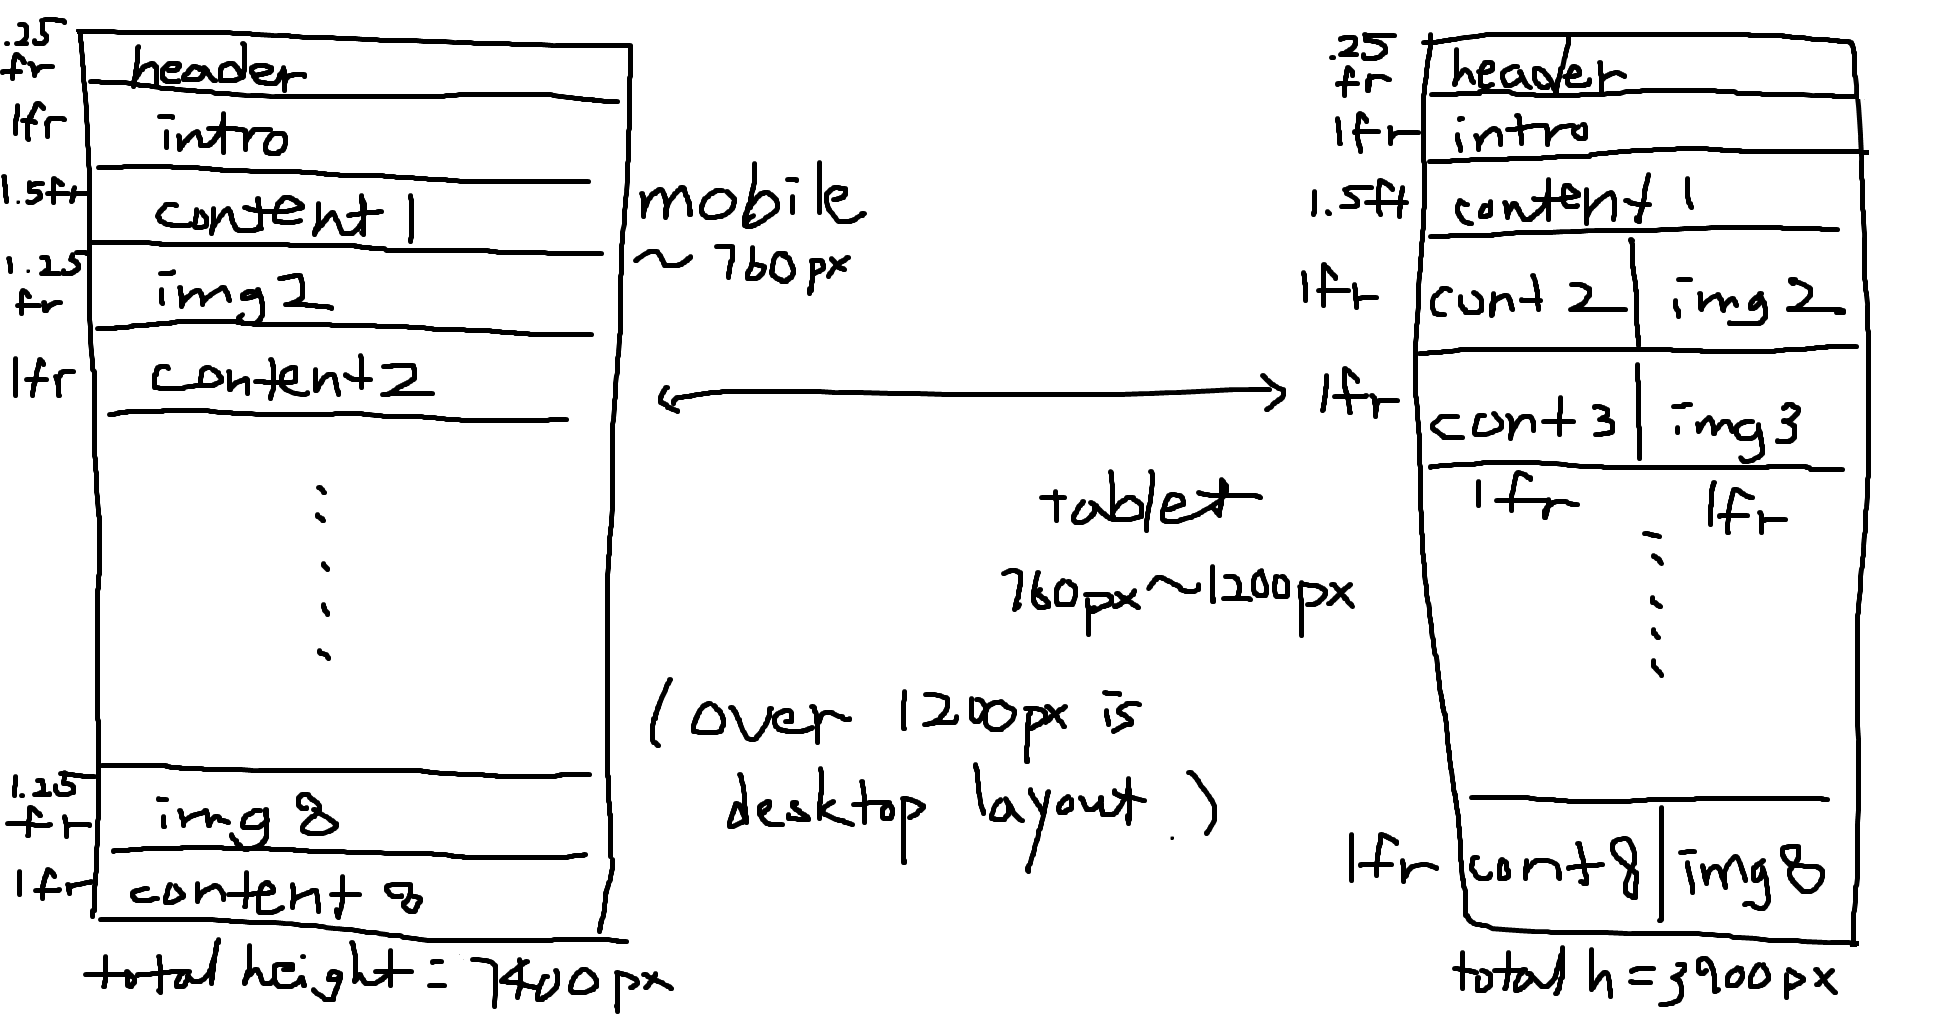 .25
fr
header
1fr
intro
1.5fr
content 1
1.25
fr
img 2
1fr
content 2
1.25
fr
img 8
1fr
content 8
total height = 7400px
mobile
~ 760px
tablet
760px~1200px
(over 1200px is
desktop layout.)
.25
fr
header
1fr
intro
1.5ft
content 1
1fr
cont 2
img 2
1fr
cont 3
img 3
1fr
1fr
1fr
cont 8
img 8
total h = 3900px